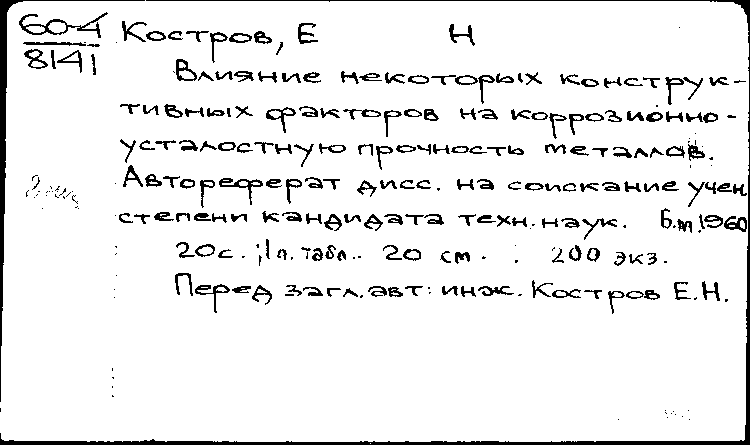 60-4
8141
Костров, Е Н
Влияние некоторых конструк-
тивных факторов на коррозионно-
усталостную прочность металлов.
Автореферат дисс. на соискание учен
степени кандидата техн. наук. Б.м, 1960
20 с.; 1 л. табл. 20 см. 200 экз.
Перед загл. авт: инж. Костров Е.Н.